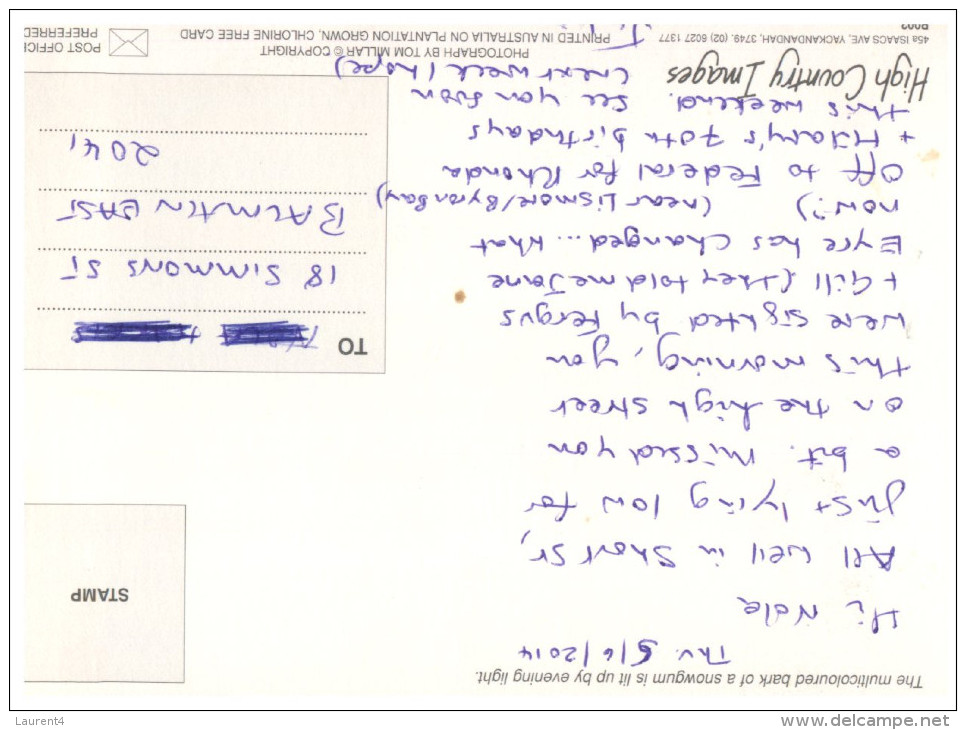 The multicoloured bark of a snowgum is lit up by evening light.
Thu. 5/6/2014
Hi Nola
All well in Short St,
just lying low for
a bit. Missed you
on the high street
this morning, you
were sighted by Fergus
+ Gill (they told me Jane
Eyre has changed... what
now?) (near Lismore/Byron Bay)
Off to Federal for Rhonda
+ Hilary's 70th birthdays
this weekend. See you soon
(next week I hope)
J.
STAMP
TO
18 SIMMONS ST
BALMAIN EAST
2041
High Country Images
45a ISAACS AVE, YACKANDANDAH, 3749. (02) 6027 1377
R003
PHOTOGRAPH BY TOM MILLAR © COPYRIGHT
PRINTED IN AUSTRALIA ON PLANTATION GROWN, CHLORINE FREE CARD
POST OFFICE
PREFERRED
Laurent4
www.delcampe.net